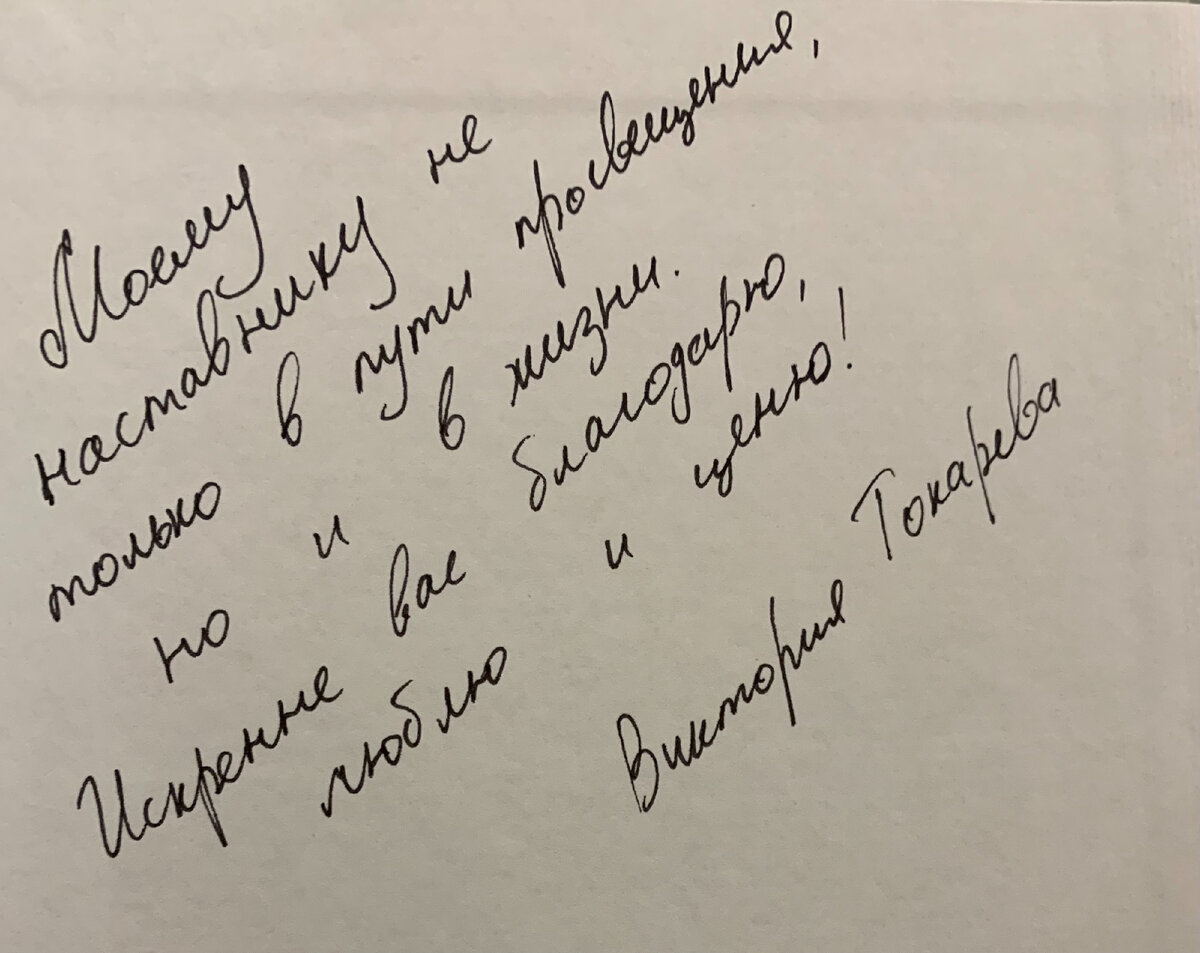 Моему
наставнику не
только в пути просвещения,
но и в жизни.
Искренне вас благодарю,
люблю и ценю!
Виктория Токарева